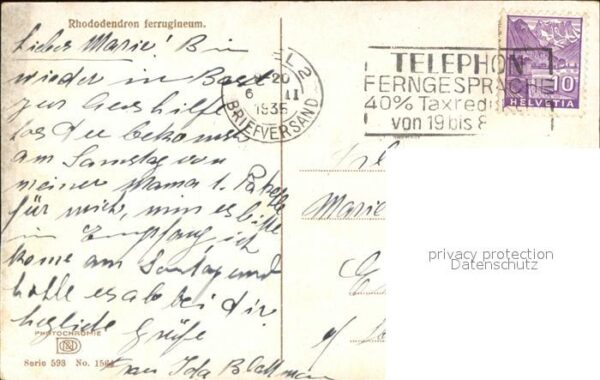 Rhododendron ferrugineum.
Liebes Marie! Bin
wieder in Basel
zur Aushilfe
das du bekomst
am Samstag von
meiner Mama 1.
für mich, nim es bitte
in Empfang, ich
kome am Sontag und
hohle es ab bei dir
herzliche Grüße
Frau Ida Blattman
PHOTOCHROMIE
Serie 598 No. 
20
6 II
1935
BRIEFVERSAND
2
TELEPHON
FERNGESPRÄCHE
40% Taxred
von 19 bis 8
10
HELVETIA
Marie
privacy protection
Datenschutz